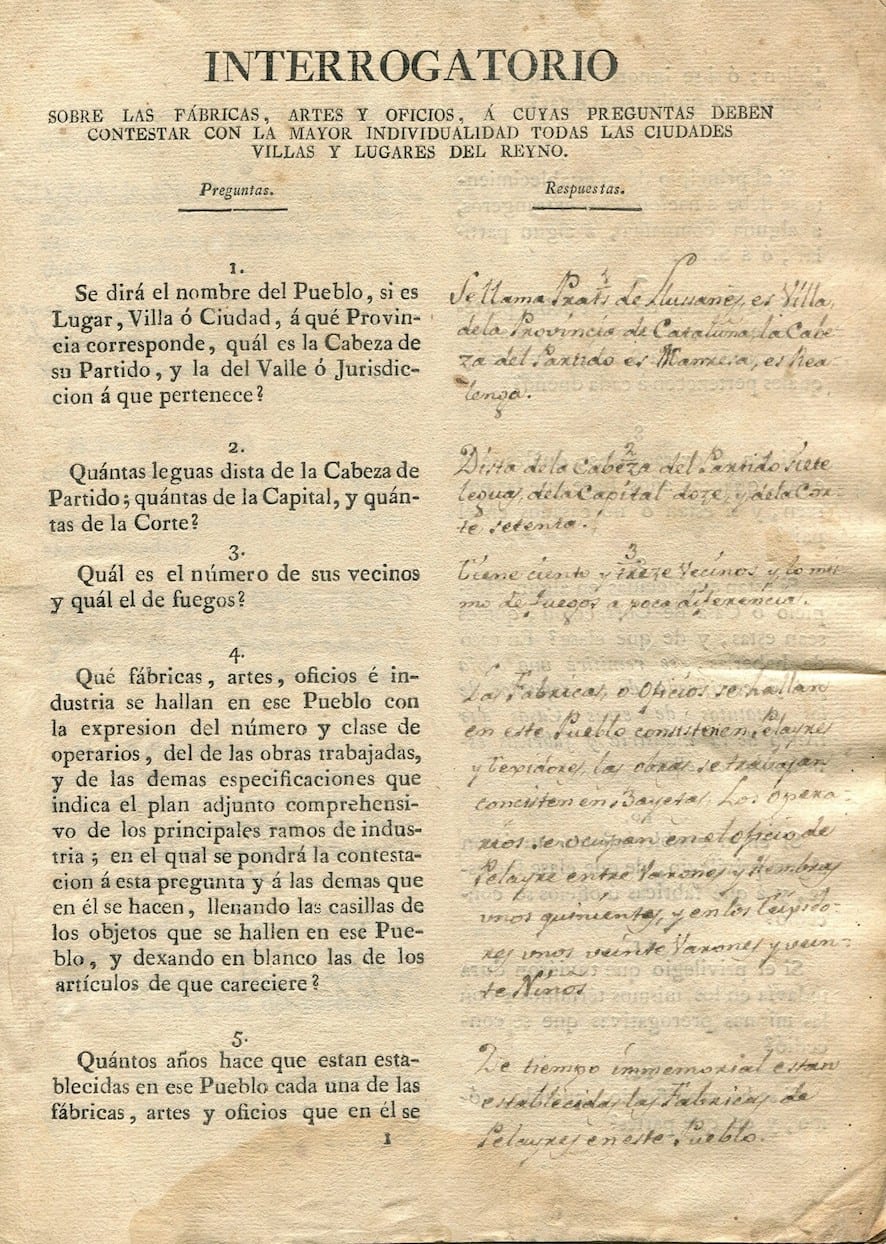 INTERROGATORIO
SOBRE LAS FÁBRICAS, ARTES Y OFICIOS, Á CUYAS PREGUNTAS DEBEN
CONTESTAR CON LA MAYOR INDIVIDUALIDAD TODAS LAS CIUDADES
VILLAS Y LUGARES DEL REYNO.
Preguntas.
1.
Se dirá el nombre del Pueblo, si es
Lugar, Villa ó Ciudad, á qué Provin-
cia corresponde, quál es la Cabeza de
su Partido, y la del Valle ó Jurisdic-
cion á que pertenece?
2.
Quántas leguas dista de la Cabeza de
Partido; quántas de la Capital, y quán-
tas de la Corte?
3.
Quál es el número de sus vecinos
y quál el de fuegos?
4.
Qué fábricas, artes, oficios é in-
dustria se hallan en ese Pueblo con
la expresion del número y clase de
operarios, del de las obras trabajadas,
y de las demas especificaciones que
indica el plan adjunto comprehensi-
vo de los principales ramos de indus-
tria; en el qual se pondrá la contesta-
cion á esta pregunta y á las demas que
en él se hacen, llenando las casillas de
los objetos que se hallen en ese Pue-
blo, y dexando en blanco las de los
artículos de que careciere?
5.
Quántos años hace que estan esta-
blecidas en ese Pueblo cada una de las
fábricas, artes y oficios que en él se
1
Respuestas.
1
Se llama Prats de Llussanes, es Villa,
de la Provincia de Cataluña, la Cabe-
za del Partido es Manresa, es Rea-
lenga.
2
Dista de la Cabeza del Partido siete
leguas, de la Capital doze, y de la Cor-
te setenta.
3
Tiene ciento y treze Vecinos y lo mis-
mo de fuegos a poca diferencia.
4
Las Fabricas, o Oficios se hallan
en este Pueblo consisten en Pelayres
y Texidores, las obras se trabajan
concisten en Bayetas. Los opera-
rios se ocupan en el oficio de
Pelayre entre Varones y Hembras
unos quinientos, y en los
unos veinte Varones y vein-
te Niños
De tiempo immemorial estan
establecidas las Fabricas de
Pelayres en este Pueblo.